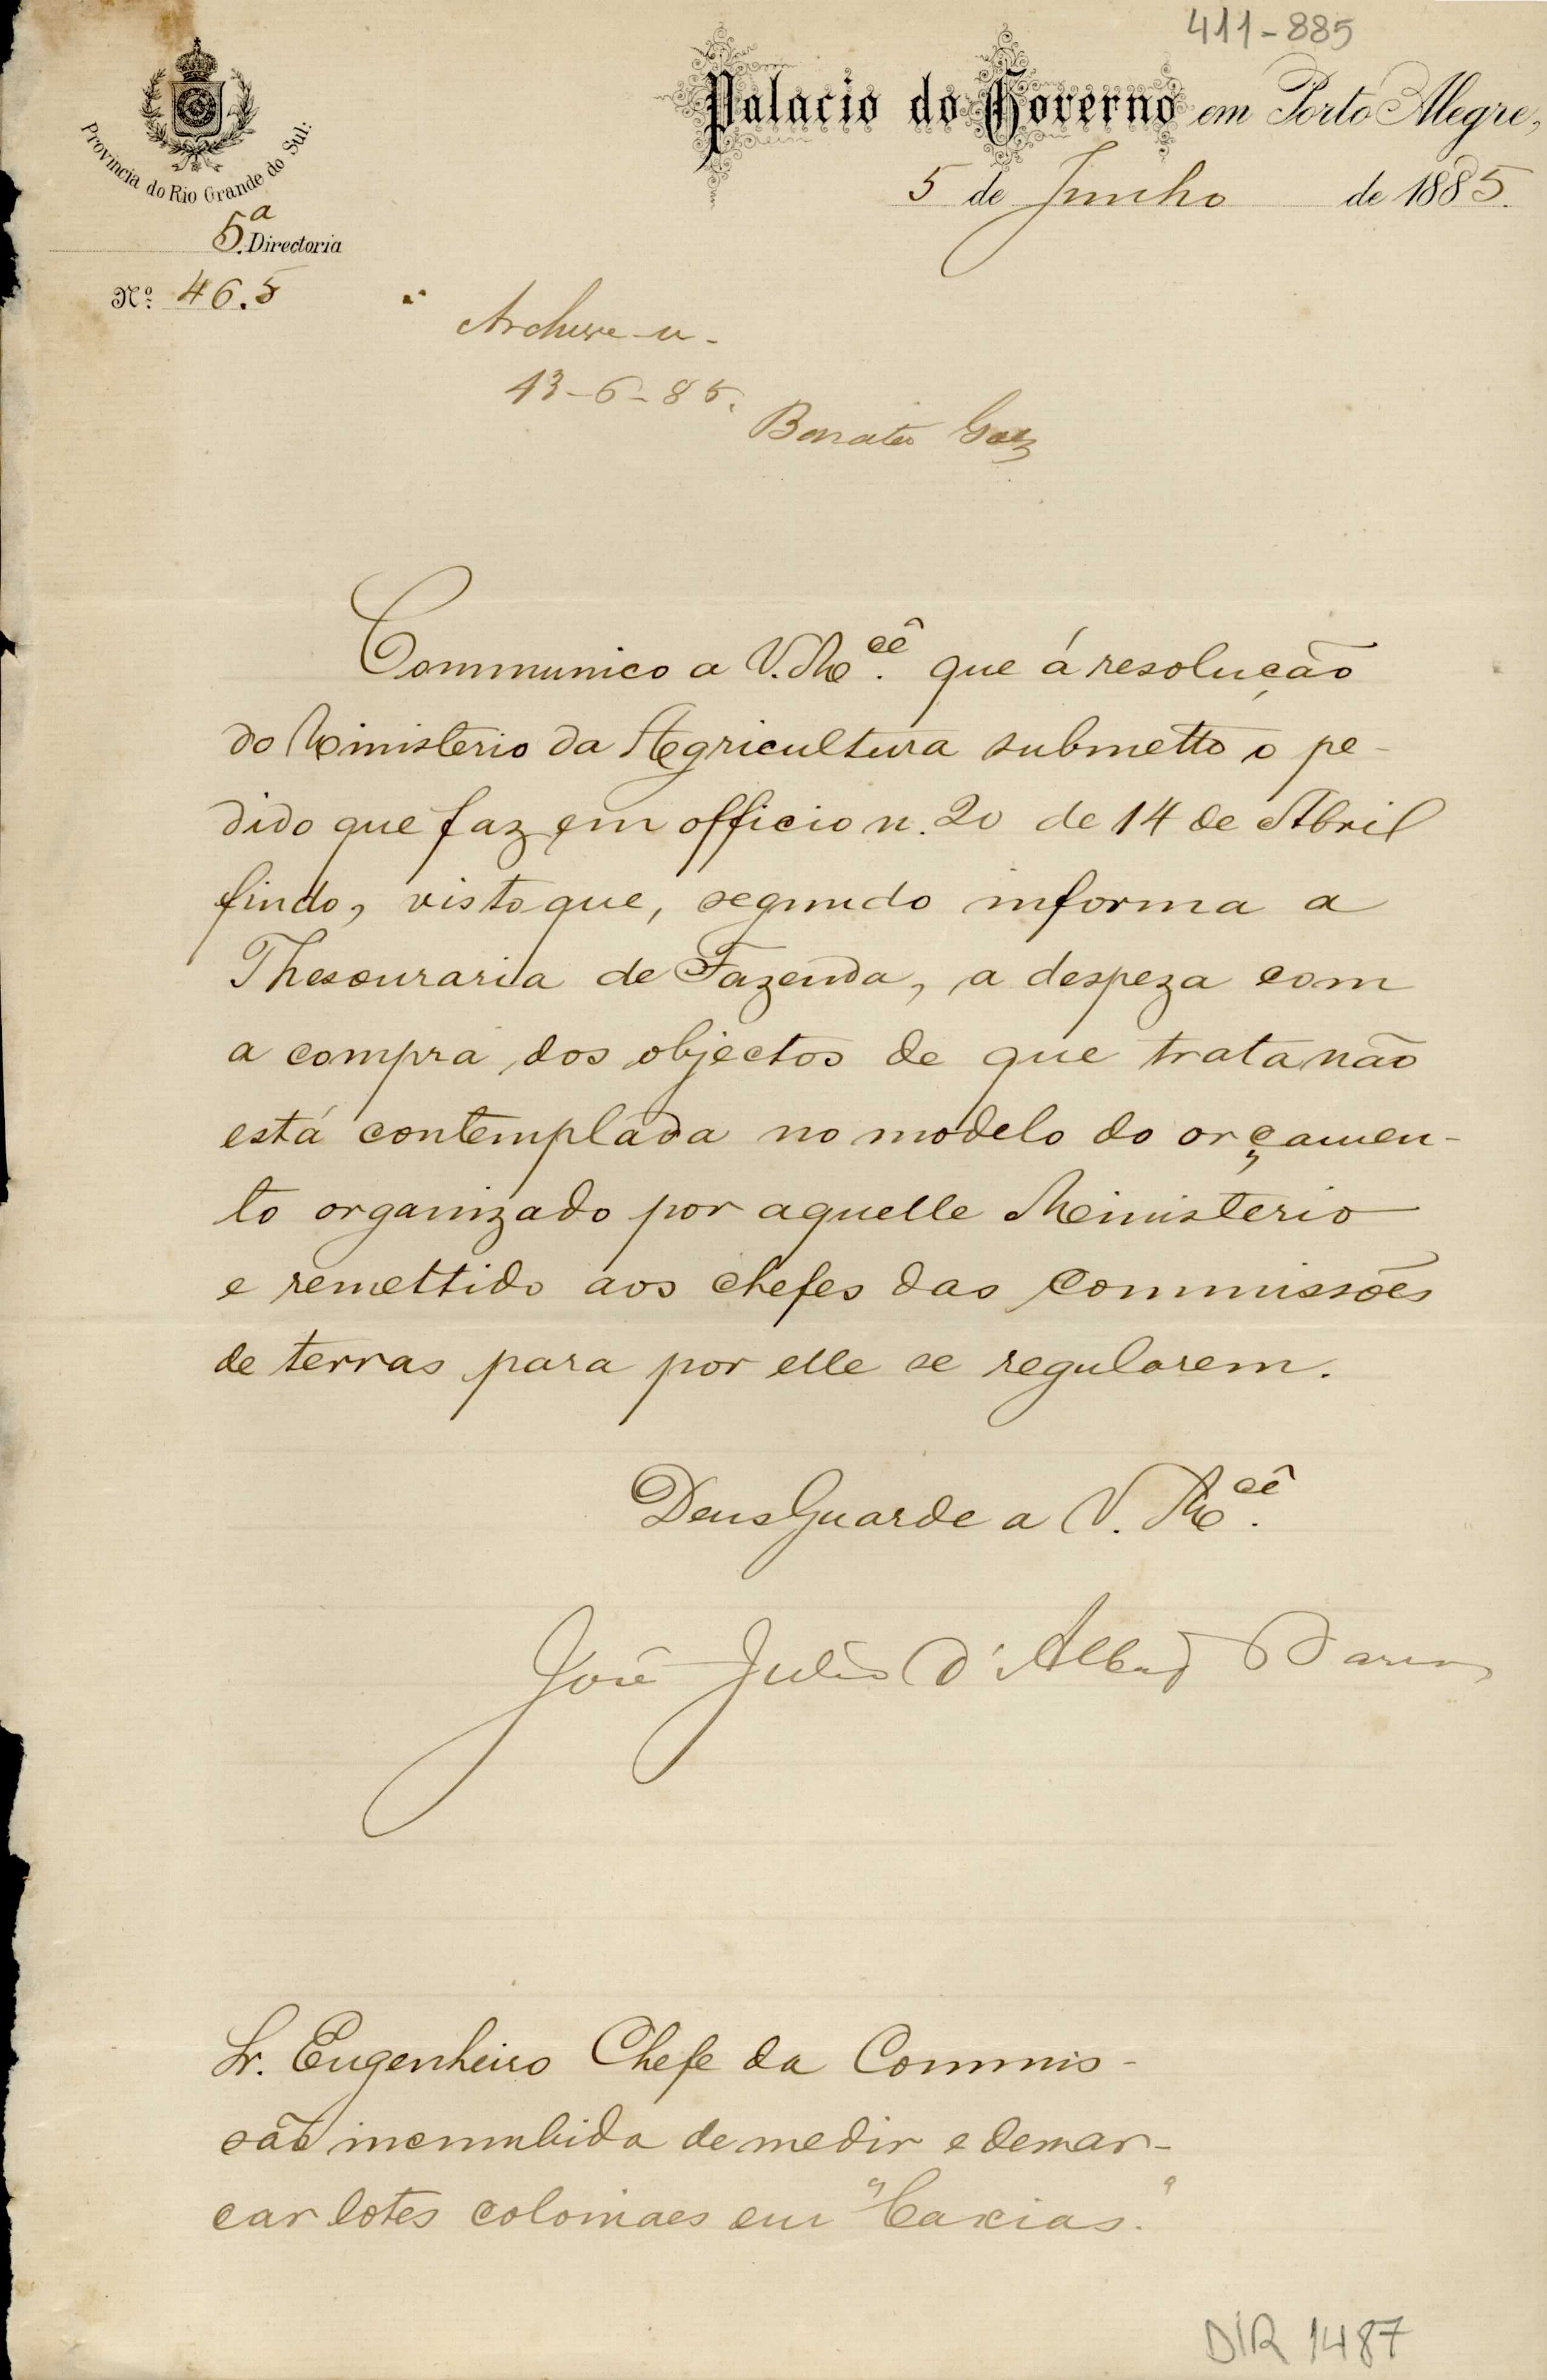 411-885
Palacio do Governo em Porto Alegre,
5 de Junho de 1885.
Provincia do Rio Grande do Sul.
5.ª Directoria
Nº 465
Archive-se.
13-6-85.
Communico a V. M.cê que á resolução
do Ministerio da Agricultura submetto o pe-
dido que faz em officio n. 20 de 14 de Abril
findo, visto que, segundo informa a
Thesouraria de Fazenda, a despeza com
a compra dos objectos de que trata não
está contemplada no modelo do orçamen-
to organizado por aquelle Ministerio
e remettido aos chefes das Commissões
de terras para por elle se regularem.
Deus Guarde a V. M.cê
José Julio d'Albuq Barros
Sr. Engenheiro Chefe da Commis-
são incumbida de medir e demar-
car lotes coloniaes em "Caxias."
DIR 1487